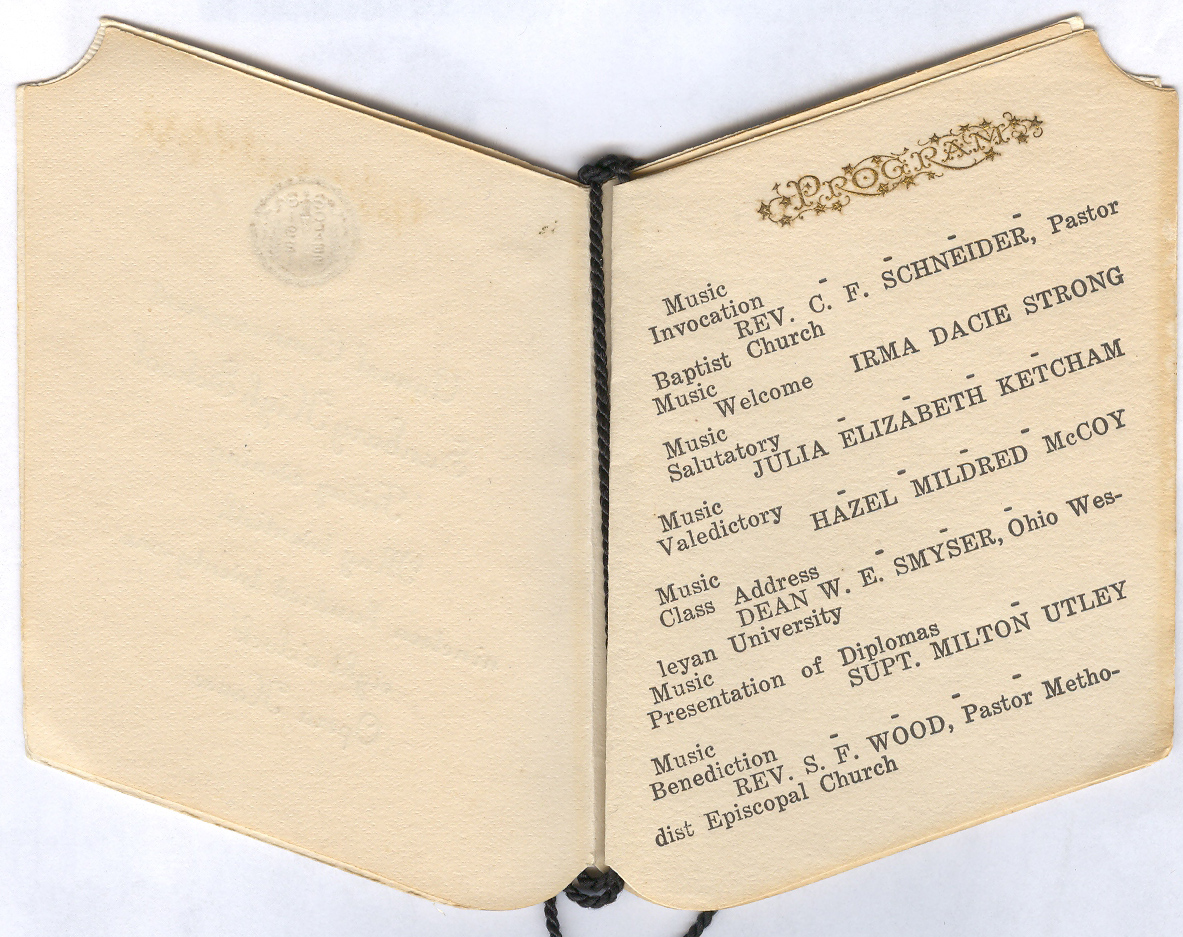 PROGRAM
Music
Invocation - - - -
REV. C. F. SCHNEIDER, Pastor
Baptist Church
Music
Welcome IRMA DACIE STRONG
Music
Salutatory - - - -
JULIA ELIZABETH KETCHAM
Music
Valedictory - - - -
HAZEL MILDRED McCOY
Music
Class Address - - -
DEAN W. E. SMYSER, Ohio Wes-
leyan University
Music
Presentation of Diplomas -
SUPT. MILTON UTLEY
Music
Benediction - - - -
REV. S. F. WOOD, Pastor Metho-
dist Episcopal Church